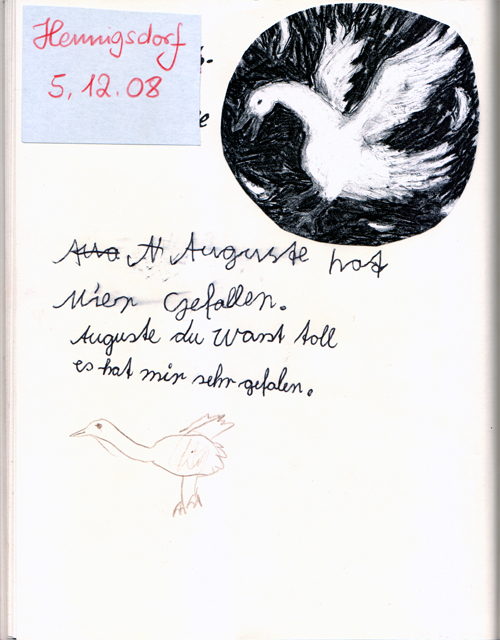 Hennigsdorf
5.12.08
Auguste hat
Mier Gefallen.
Auguste du Warst toll
es hat mir sehr gefalen.